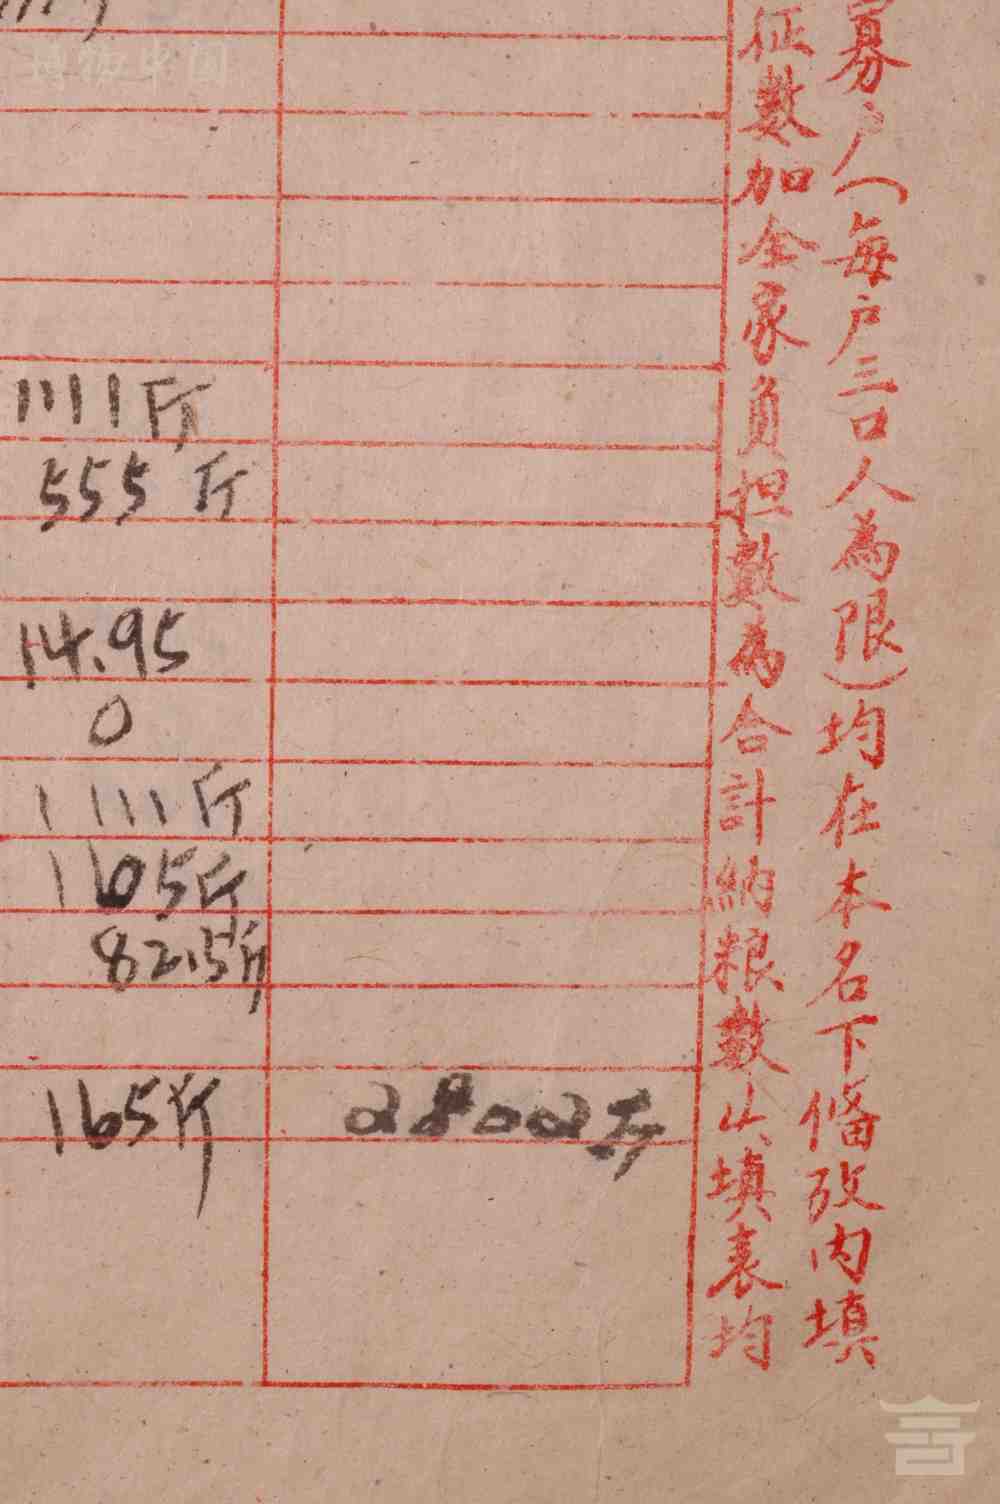 寡户人(每户三口人為限)均在本名下偹攷内填
征数加全家負担数為合計納粮数山填表均
1111斤
555斤
14.95
0
1111斤
1105斤
82.5斤
165斤
28002斤